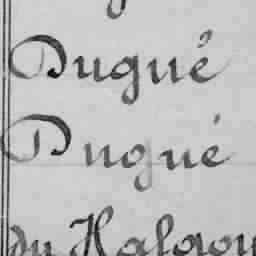 Dugué
Dugué
du Halgou